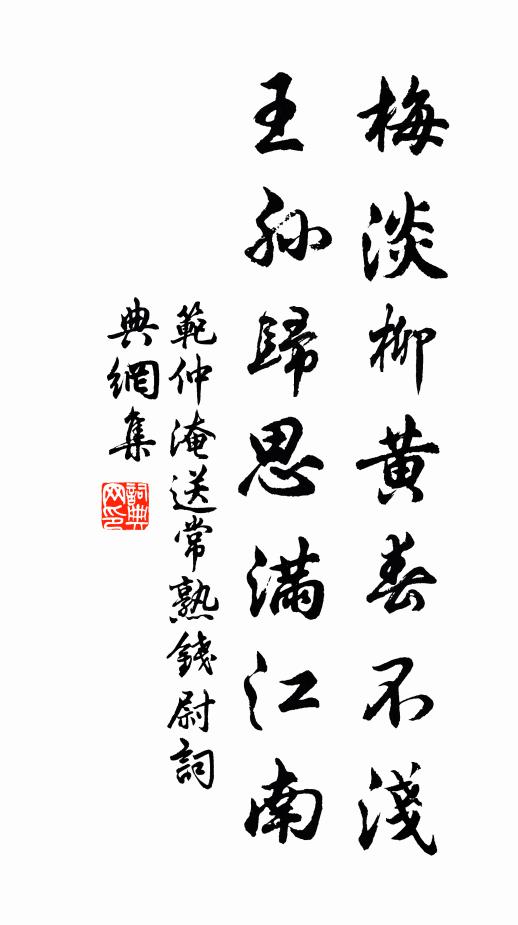 梅淡柳黄春不淺
王孫歸思滿江南
範仲淹送常熟錢尉詞
典網集
詞典網印